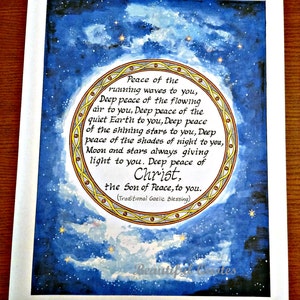 Peace of the
running waves to you,
Deep peace of the flowing
air to you, Deep peace of the
quiet Earth to you, Deep peace
of the shining stars to you, Deep
peace of the shades of night to you,
Moon and stars always giving
light to you. Deep peace of
Christ,
the Son of Peace, to you.
(Traditional Gaelic Blessing)